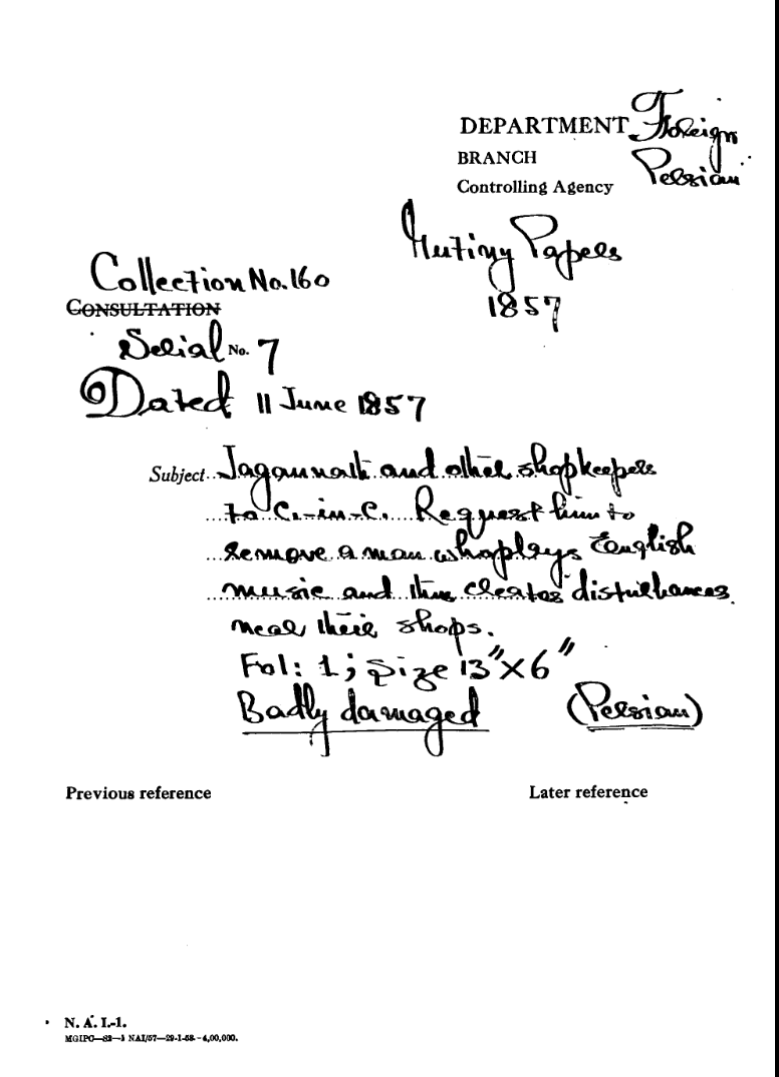 DEPARTMENT Foreign
BRANCH Persian
Controlling Agency
Mutiny Papers
1857
Collection No. 160
CONSULTATION
Serial No. 7
Dated 11 June 1857
Subject.. Jagannath and other shopkeepers
to C.-in-C. Request him to
remove a man who plays English
music and thus creates disturbances
near their shops.
Fol: 1; Size 13"X6"
Badly damaged (Persian)
Previous reference Later reference
N. A. I.-1.
MGIPC—S2—1 NAI/57—29-1-58—4,00,000.